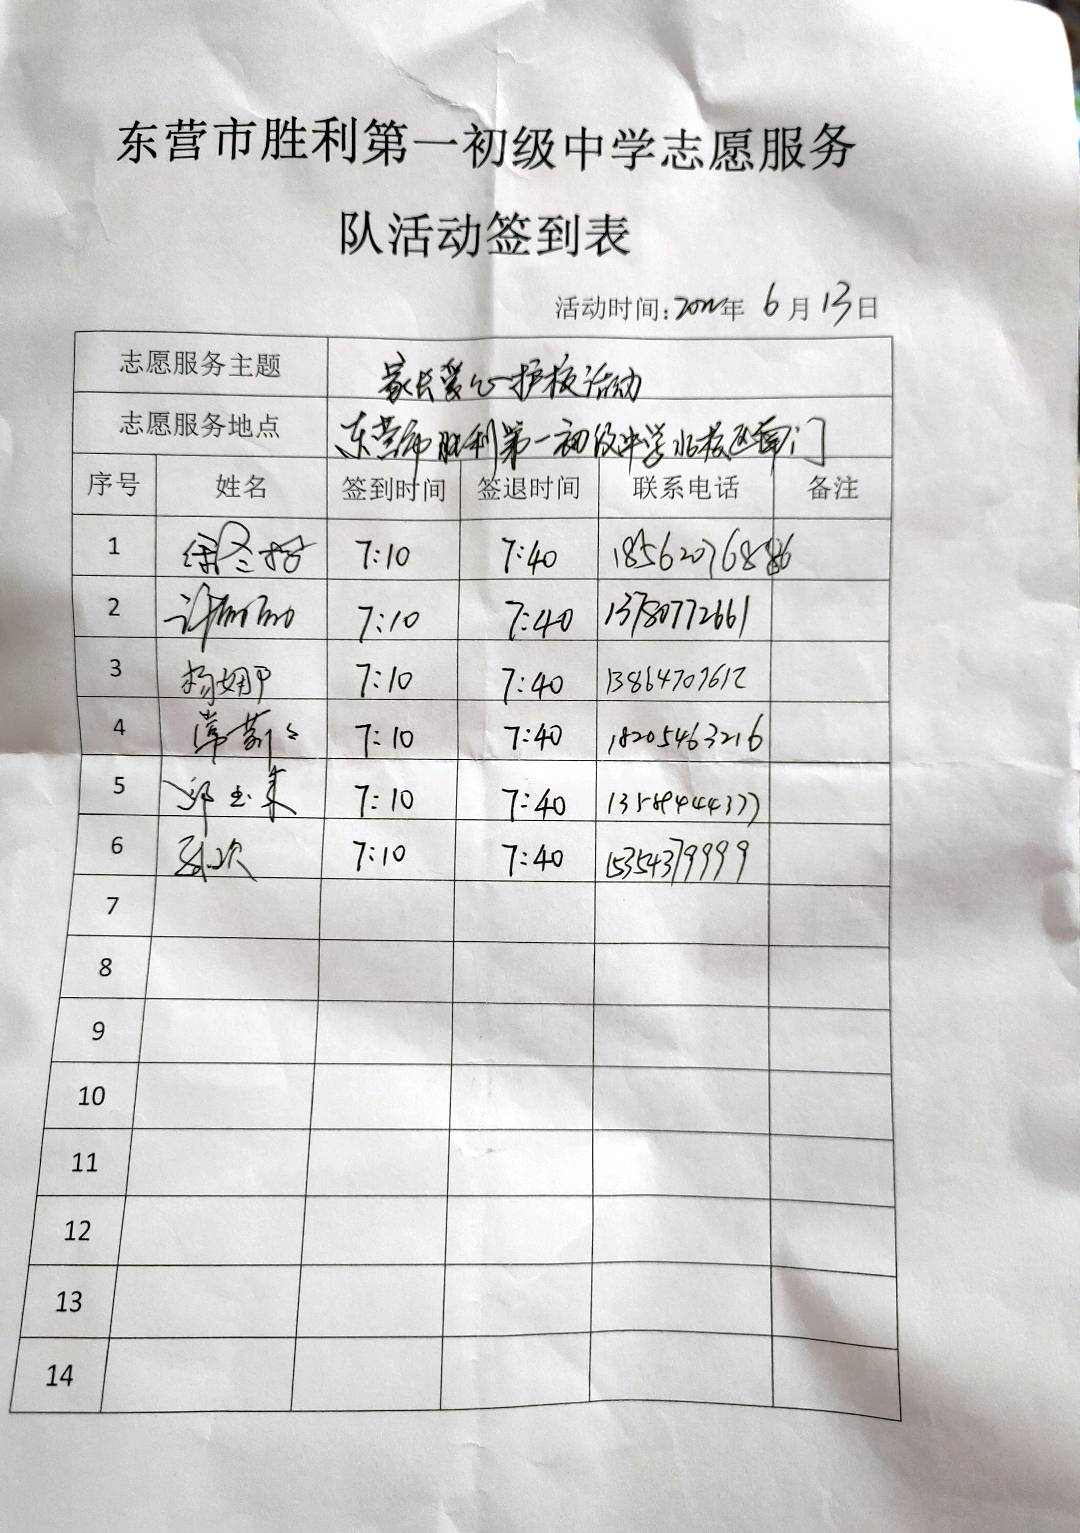 东营市胜利第一初级中学志愿服务
队活动签到表
活动时间：2022年 6月13日
志愿服务主题 家长爱心护校活动
志愿服务地点 东营市胜利第一初级中学北校区南门
序号 姓名 签到时间 签退时间 联系电话 备注
1 7:10 7:40
2 许 7:10 7:40 13780772661
3 杨 7:10 7:40 13864707612
4 常 7:10 7:40 18205463216
5 邱玉来 7:10 7:40 13589444377
6 7:10 7:40 15354379999
7
8
9
10
11
12
13
14